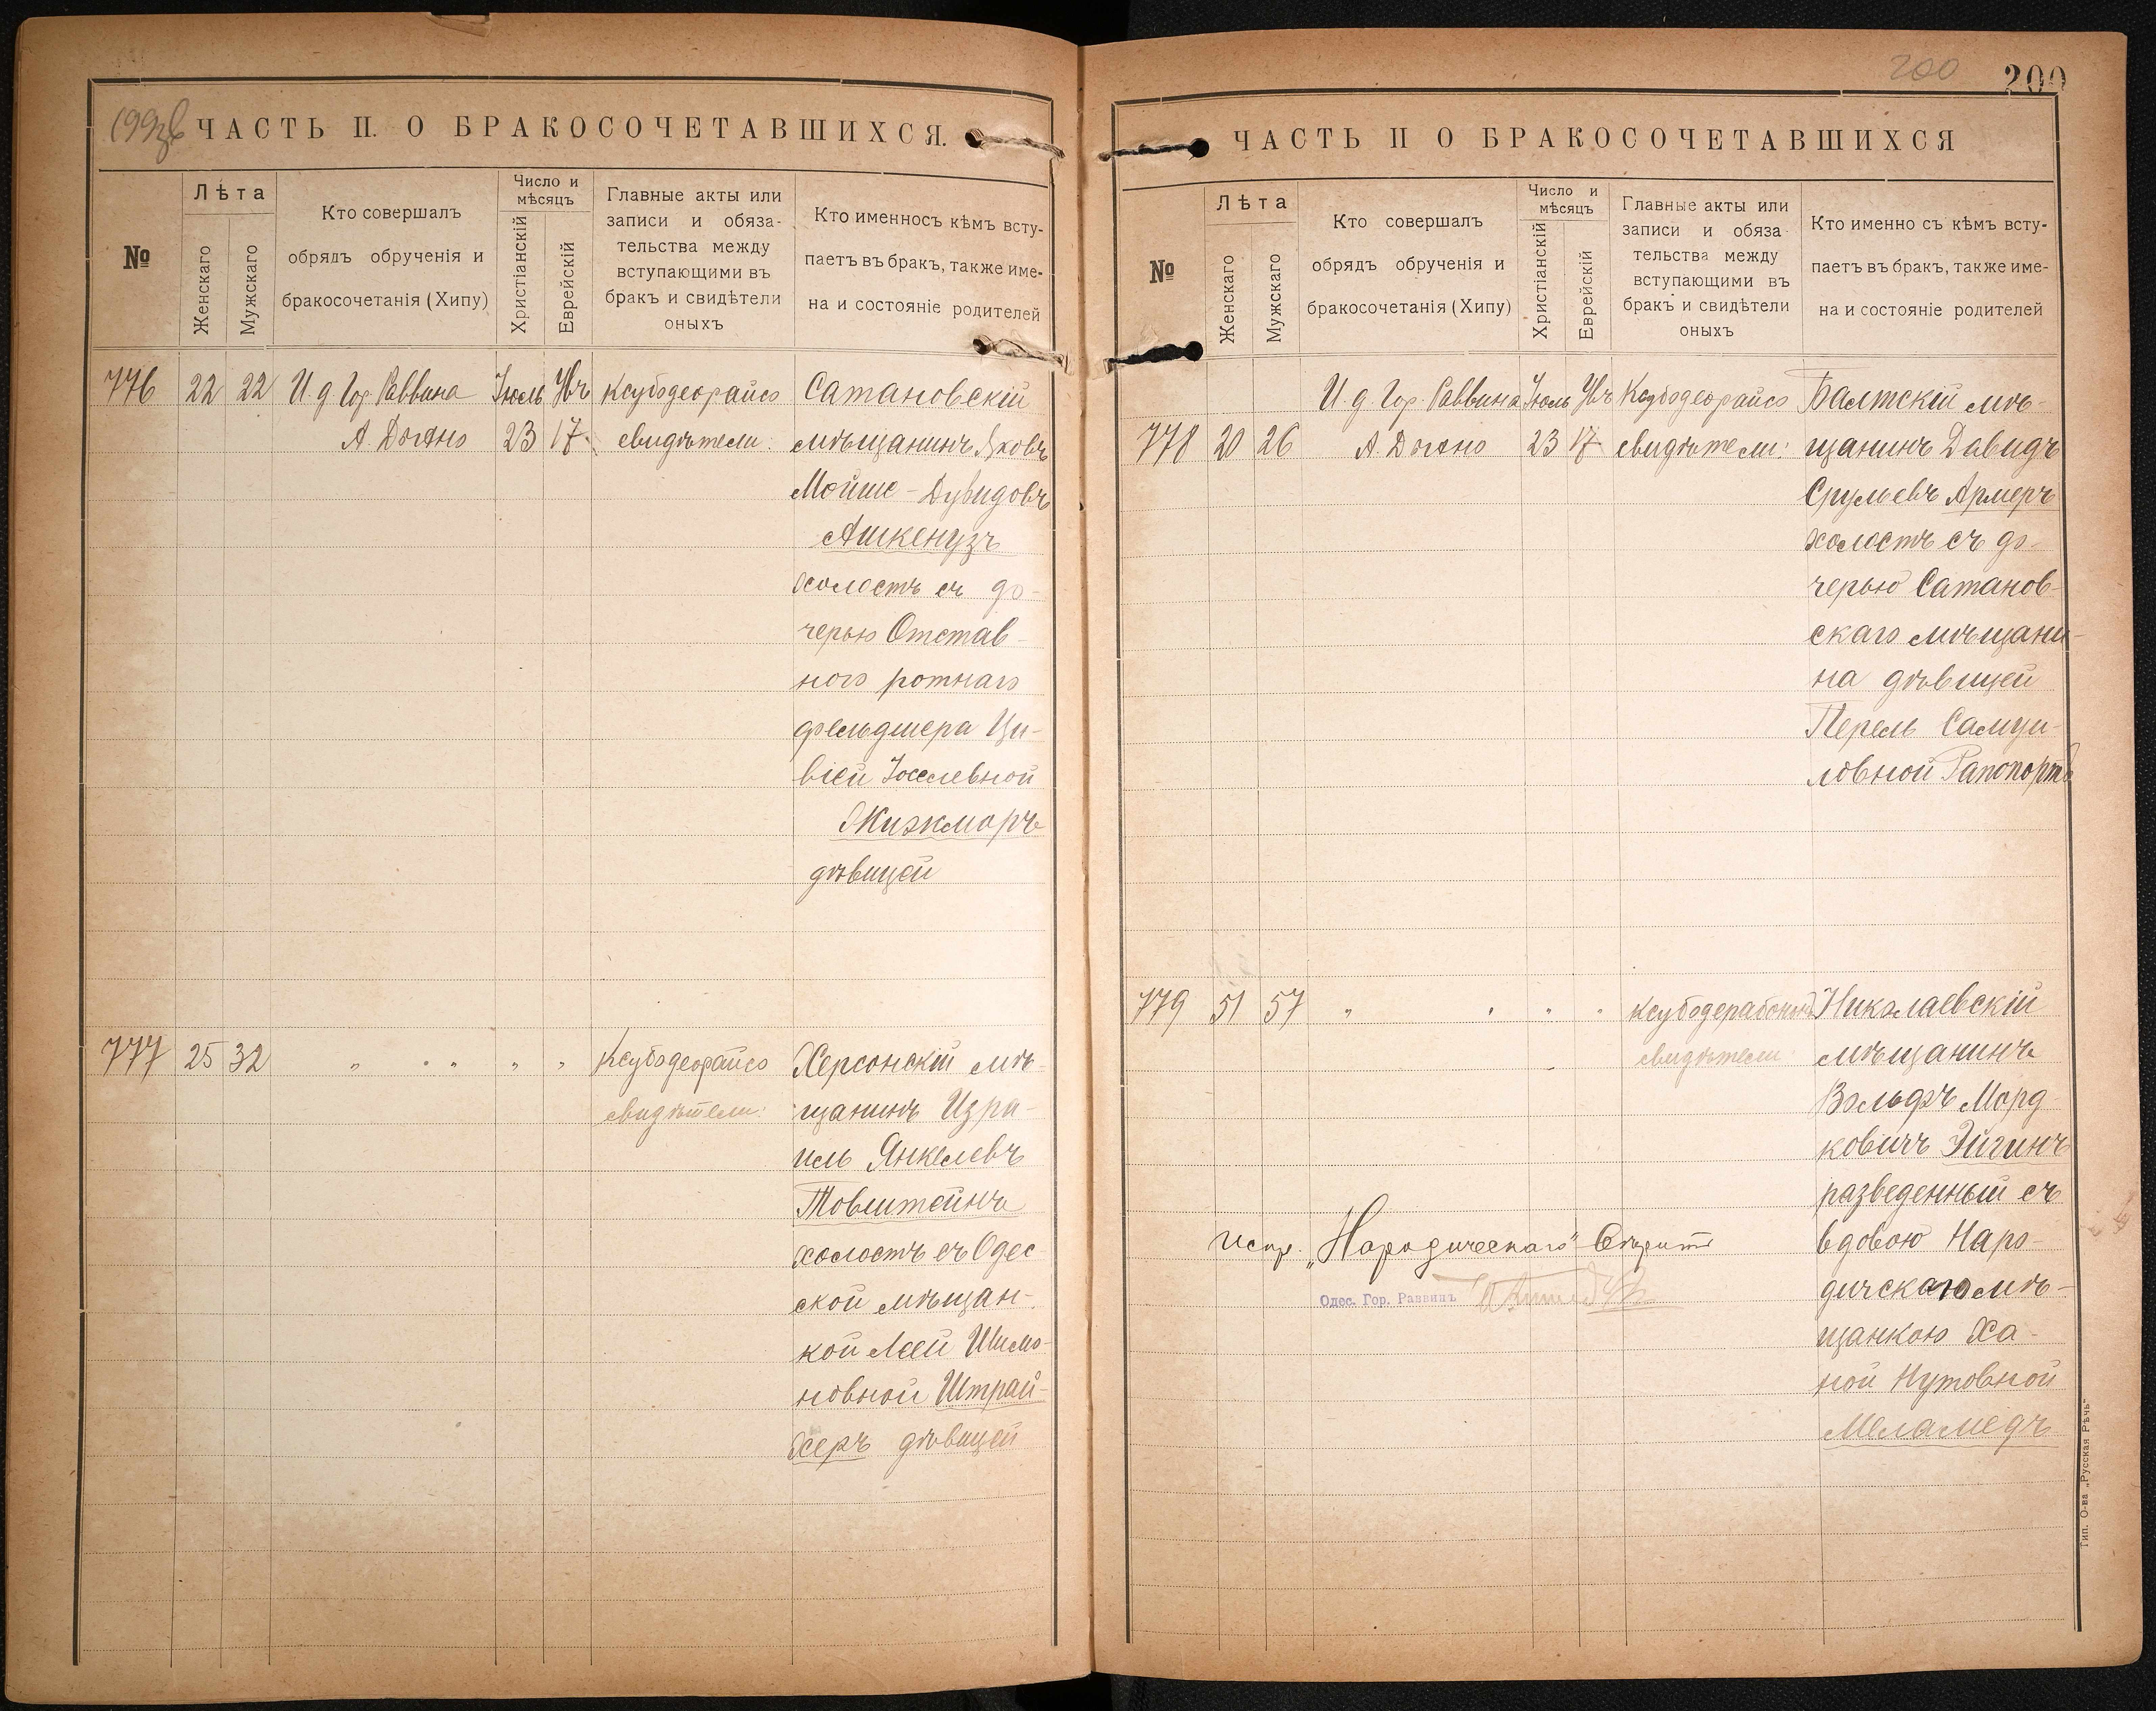 199об
ЧАСТЬ II. О БРАКОСОЧЕТАВШИХСЯ.
№
Лѣта
Женскаго
Мужскаго
Кто совершалъ
обрядъ обрученія и
бракосочетанія (Хипу)
Число и
мѣсяцъ
Христіанскій
Еврейскій
Главные акты или
записи и обяза-
тельства между
вступающими въ
бракъ и свидѣтели
оныхъ
Кто именносъ кѣмъ всту-
паетъ въ бракъ, также име-
на и состояніе родителей
776 22 22 И. д. Гор. Раввина ІюльУвъ Ксубодеорайсо Сатановскій
А. Динъ 23 17 свидѣтели: мѣщанинъ Яковъ
Мойше-Дувидовъ
Ашкенузъ
холостъ съ до-
черью Отстав-
ного ротнаго
фельдшера Ци-
віей Іоселевной
Жизморъ
дѣвицей
777 25 32 " " " " " Ксубодеорайсо Херсонскій мѣ-
свидѣтели: щанинъ Изра-
иль Янкелевъ
Товштейнъ
холостъ съ Одес
ской мѣщан-
кой Леей Шимо-
новной Штрай-
херъ дѣвицей
200
200
ЧАСТЬ II О БРАКОСОЧЕТАВШИХСЯ
№
Лѣта
Женскаго
Мужскаго
Кто совершалъ
обрядъ обрученія и
бракосочетанія (Хипу)
Число и
мѣсяцъ
Христіанскій
Еврейскій
Главные акты или
записи и обяза-
тельства между
вступающими въ
бракъ и свидѣтели
оныхъ
Кто именно съ кѣмъ всту-
паетъ въ бракъ, также име-
на и состояніе родителей
И. д. Гор. Раввина Іюль Увъ Ксубодеорайсо Балтскій мѣ-
778 20 26 23 17 свидѣтели: щанинъ Давидъ
Срулевъ Армеръ
холостъ съ до-
черью Сатанов-
скаго мѣщани-
на дѣвицей
Перель Самуи-
ловной Рапопортъ
779 51 57 " " " " Николаевскій
свидѣтели: мѣщанинъ
Вольфъ Морд
ковичъ Эйгинъ
разведенный съ
Испр. „Народическаго" вдовою Наро-
Одес. Гор. Раввинъ дическаго мѣ-
щанкою Ха-
ной Нутовной
Меламедъ
Тип. О-ва „Русская Рѣчь"